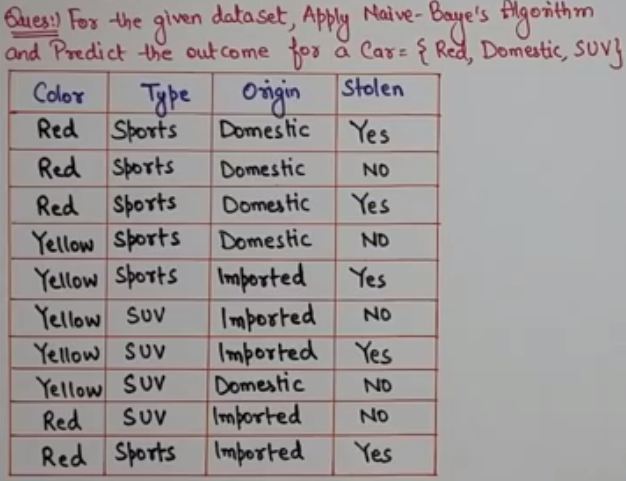 Ques:) For the given dataset, Apply Naive-Baye's Algorithm
and Predict the outcome for a Car = { Red, Domestic, SUV}
Color Type Origin Stolen
Red Sports Domestic Yes
Red Sports Domestic NO
Red Sports Domestic Yes
Yellow Sports Domestic NO
Yellow Sports Imported Yes
Yellow SUV Imported NO
Yellow SUV Imported Yes
Yellow SUV Domestic NO
Red SUV Imported NO
Red Sports Imported Yes